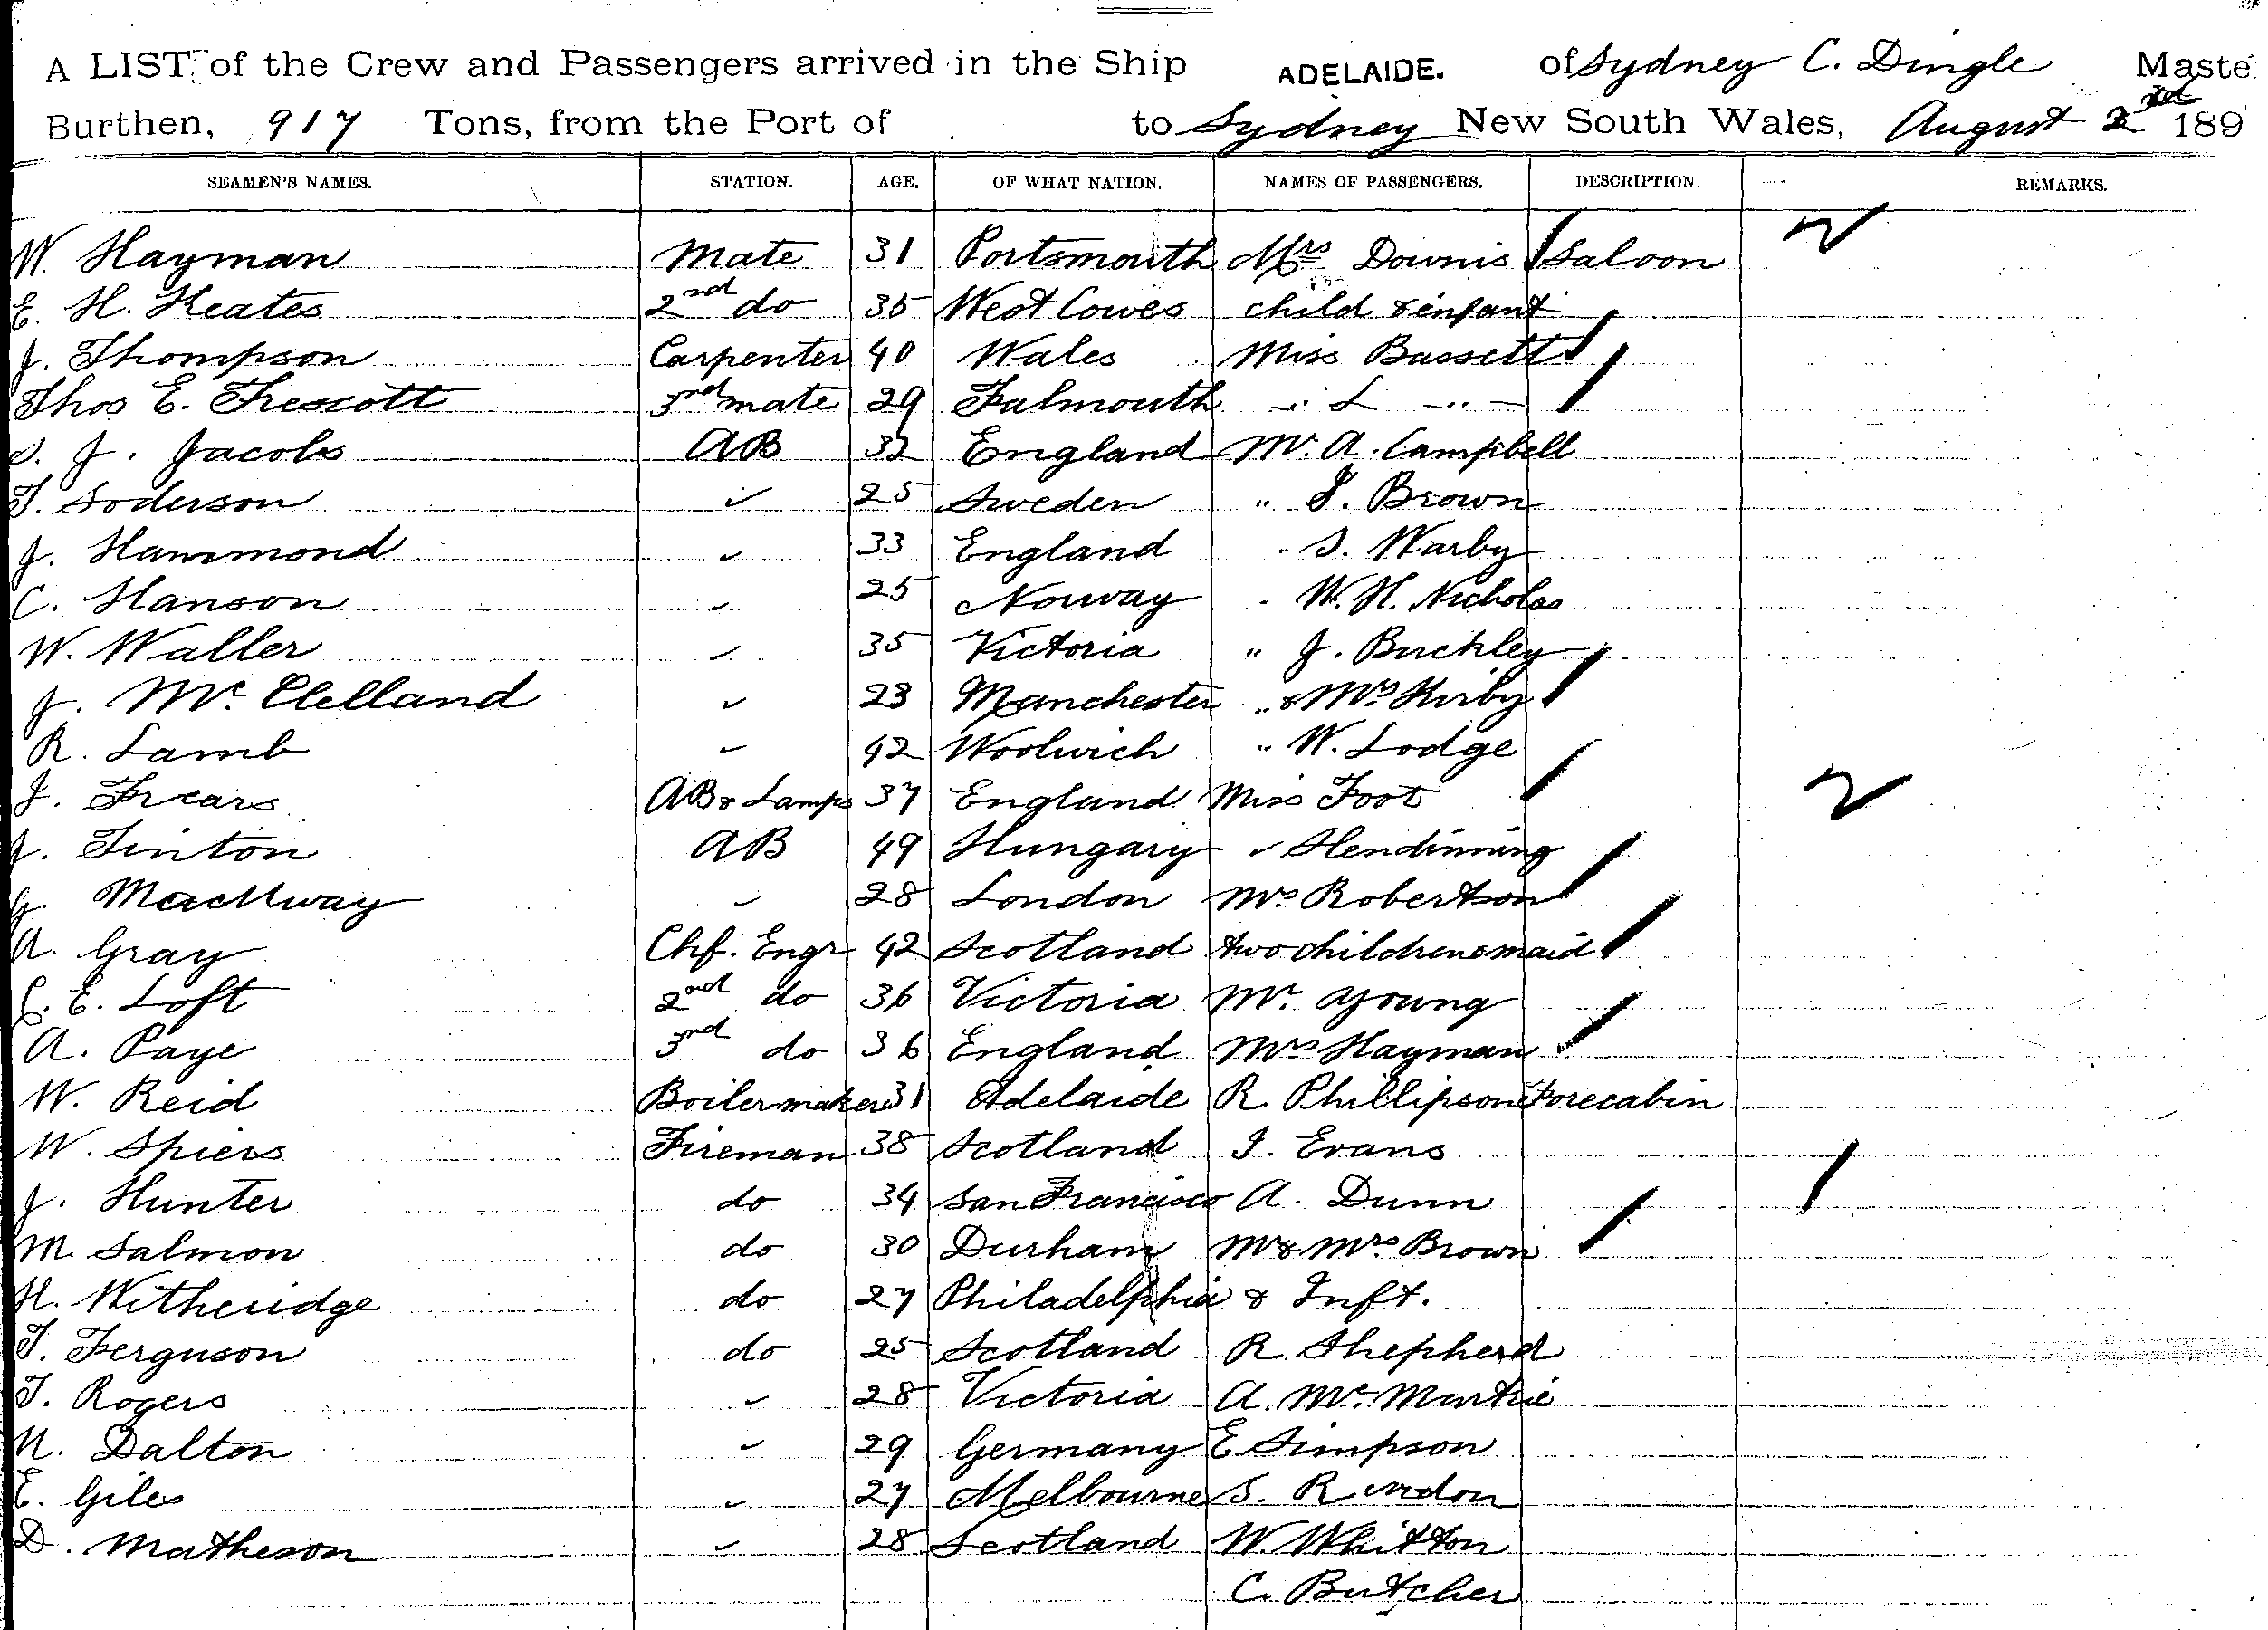 A LIST of the Crew and Passengers arrived in the Ship ADELAIDE. of Sydney C. Dingle Maste
Burthen, 917 Tons, from the Port of to Sydney New South Wales, August 2 189
SEAMEN'S NAMES. STATION. AGE. OF WHAT NATION. NAMES OF PASSENGERS. DESCRIPTION. REMARKS.
W. Hayman Mate 31 Portsmouth Mrs Downis Saloon
E. H. Keates 2nd do 35 West Cowes child & infant
J. Thompson Carpenter 40 Wales Miss Bassett
Thos E. Trescott 3rd mate 29 Falmouth " L "
S. J. Jacobs AB 32 England Mr. A. Campbell
T. Soderson ✓ 25 Sweden " J. Brown
J. Hammond ✓ 33 England " S. Warby
C. Hanson ✓ 25 Norway " W. H. Nicholas
W. Waller ✓ 35 Victoria " J. Buckley
J. McClelland ✓ 23 Manchester " & Mrs Kirby
R. Lamb ✓ 42 Woolwich " W. Lodge
J. Frears AB & Lamps 37 England Miss Foot
J. Tinton AB 49 Hungary ✓ Hendinning
G. ✓ 28 London Mrs Robertson
A. Gray Chf. Engr 42 Scotland two children & maid
C. E. Loft 2nd do 36 Victoria Mr. Young
A. Paye 3rd do 36 England Mrs Hayman
W. Reid Boilermaker 31 Adelaide R. Phillipson Forecabin
W. Spiers Fireman 38 Scotland J. Evans
J. Hunter do 34 San Francisco A. Dunn
M. Salmon do 30 Durham Mr & Mrs Brown
H. Witheridge do 27 Philadelphia & Inft.
T. Ferguson do 25 Scotland R. Shepherd
T. Rogers ✓ 28 Victoria A. Mc
N. Dalton ✓ 29 Germany E. Simpson
E. Giles ✓ 27 Melbourne S.
D. Matheson ✓ 28 Scotland W. Whitton
C. Butcher